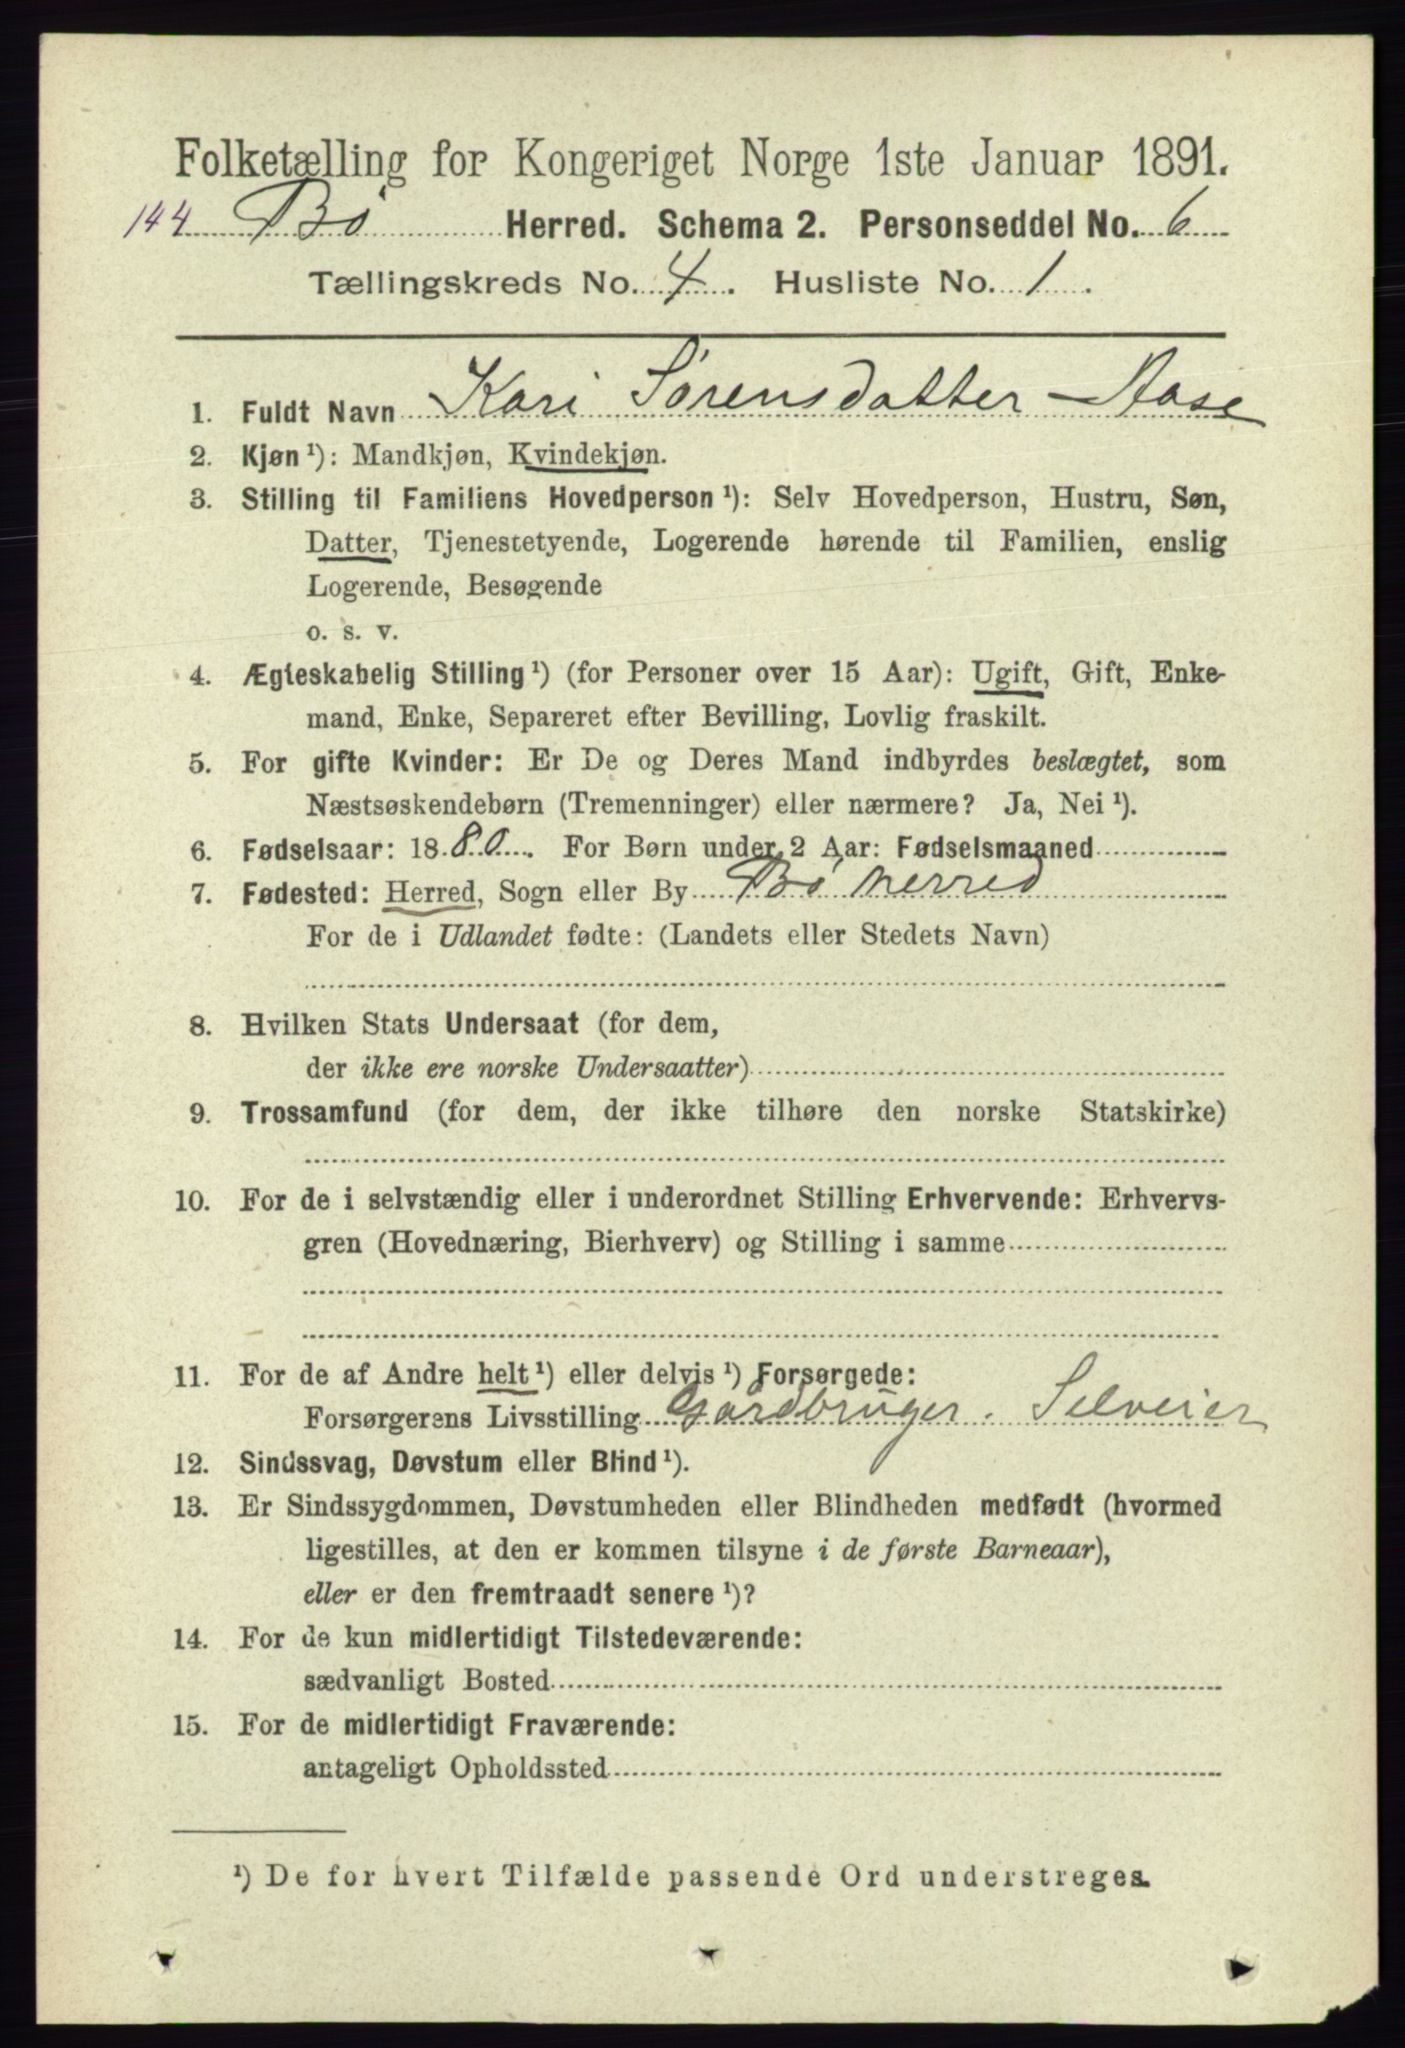 Folketælling for Kongeriget Norge 1ste Januar 1891.
144 Bø Herred. Schema 2. Personseddel No. 6
Tællingskreds No. 4. Husliste No. 1.
1. Fuldt Navn Kari Sørensdatter Aase
2. Kjøn¹): Mandkjøn, Kvindekjøn.
3. Stilling til Familiens Hovedperson¹): Selv Hovedperson, Hustru, Søn,
Datter, Tjenestetyende, Logerende hørende til Familien, enslig
Logerende, Besøgende
o. s. v.
4. Ægteskabelig Stilling¹) (for Personer over 15 Aar): Ugift, Gift, Enke-
mand, Enke, Separeret efter Bevilling, Lovlig fraskilt.
5. For gifte Kvinder: Er De og Deres Mand indbyrdes beslægtet, som
Næstsøskendebørn (Tremenninger) eller nærmere? Ja, Nei¹).
6. Fødselsaar: 1880. For Børn under 2 Aar: Fødselsmaaned
7. Fødested: Herred, Sogn eller By Bø herred
For de i Udlandet fødte: (Landets eller Stedets Navn)
8. Hvilken Stats Undersaat (for dem,
der ikke ere norske Undersaatter)
9. Trossamfund (for dem, der ikke tilhøre den norske Statskirke)
10. For de i selvstændig eller i underordnet Stilling Erhvervende: Erhvervs-
gren (Hovednæring, Bierhverv) og Stilling i samme
11. For de af Andre helt¹) eller delvis¹) Forsørgede:
Forsørgerens Livsstilling Gårdbruger. Selveier
12. Sindssvag, Døvstum eller Blind¹).
13. Er Sindssygdommen, Døvstumheden eller Blindheden medfødt (hvormed
ligestilles, at den er kommen tilsyne i de første Barneaar),
eller er den fremtraadt senere¹)?
14. For de kun midlertidigt Tilstedeværende:
sædvanligt Bosted
15. For de midlertidigt Fraværende:
antageligt Opholdssted
¹) De for hvert Tilfælde passende Ord understreges.